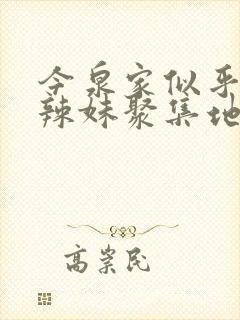 今泉家似乎
辣妹聚集地
高崇民